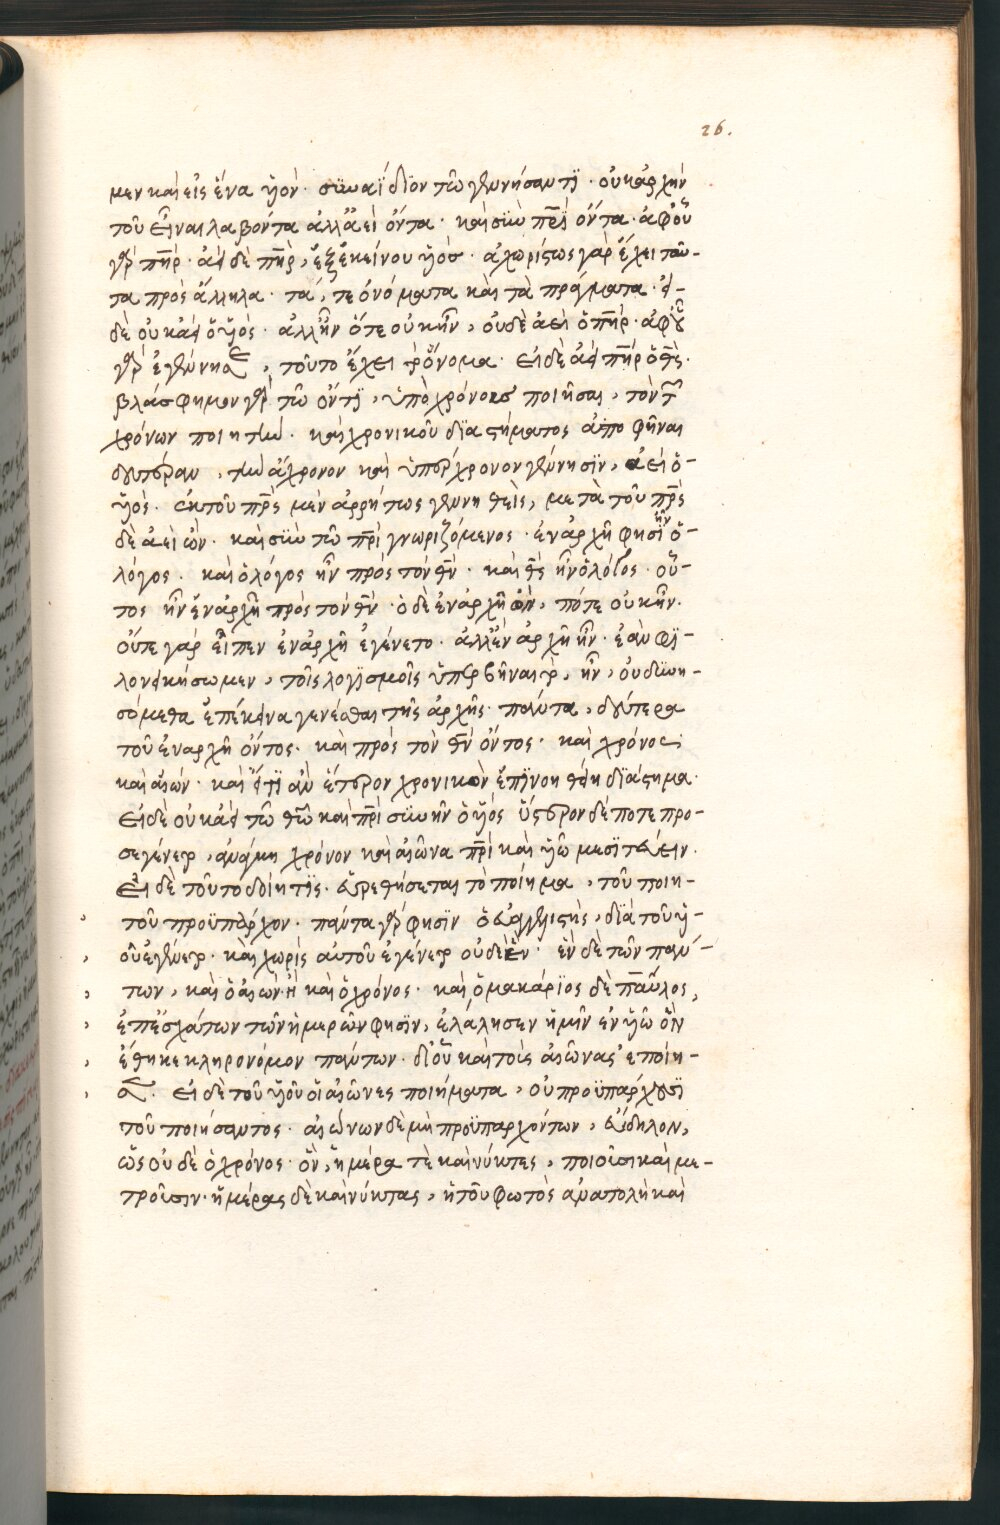 26.
μεν καὶ εἰς ἕνα ὑϊὸν· συναΐδϊον τῶ γεννήσαντϊ· οὐκ ἀρχὴν
τοῦ εἶναι λαβόντα ἀλλ' ἀεὶ ὄντα· καὶ σὺν πρὶ ὄντα· ἀφ' οὗ
γὰρ πὴρ· ἀεὶ δὲ πὴρ, ἐξ ἐκείνου ὑϊὸς· ἀχωρίστως γὰρ ἔχει ταῦ-
τα πρὸς ἄλληλα· τά, τε ὀνόματα καὶ τὰ πράγματα· εἰ-
δὲ οὐκ ἀεὶ ὁ ὑϊὸς· ἀλλ' ἦν ὅτε οὐκ ἦν, οὐδὲ ἀεὶ ὁ πὴρ· ἀφ' οὗ
γὰρ ἐγέννησε, τοῦτο ἔχει τὸ ὄνομα· εἰ δὲ ἀεὶ πὴρ ὁ θς·
βλάσφημον γὰρ τῶ ὄντϊ, ὑπὸ χρόνους ποιῆσαι, τὸν τῶν
χρόνων ποιητὴν· καὶ χρονικοῦ δϊαστήματος ἀποφῆναι
δευτέραν, τὴν ἄχρονον καὶ ὑπέρχρονον γέννησϊν, ἀεὶ ὁ-
ὑϊὸς· ἐκ τοῦ πρς μὲν ἀρρήτως γεννηθεὶς, μετὰ τοῦ πρς
δὲ ἀεὶ ὢν· καὶ σὺν τῶ πρὶ γνωριζόμενος· ἐν ἀρχῆ φησὶν ἦν ὁ-
λόγος· καὶ ὁ λόγος ἦν πρὸς τὸν θν· καὶ θς ἦν ὁ λόγος· οὗ-
τος ἦν ἐν ἀρχῆ πρὸς τὸν θν· ὁ δὲ ἐν ἀρχῆ ὢν, πότε οὐκ ἦν·
οὔτε γὰρ εἶπεν ἐν ἀρχῆ ἐγένετο· ἀλλ' ἐν ἀρχῆ ἦν· ἐὰν φϊ-
λονεικήσωμεν, τοῖς λογϊσμοῖς ὑπερβῆναι τὸ, ἦν, οὐ δϋνη-
σόμεθα ἐπέκεινα γενέσθαι τῆς ἀρχῆς· πάντα, δεύτερα
τοῦ ἐν αρχῆ ὄντος· καὶ πρὸς τὸν θν ὄντος· καὶ χρόνος
καὶ αἰών· καὶ ἔτϊ ἂν ἕτερον χρονικὸν ἐπϊνοηθείη δϊάστημα·
εἰ δὲ οὐκ ἀεὶ τῶ θῶ καὶ πρὶ σὺν ἦν ὁ ὑϊὸς ὕστερον δέ ποτε προ-
σεγένετο, ἀνάγκη χρόνον καὶ αἰῶνα πρὶ καὶ ὑϊῶ μεσϊτεύειν·
εἰ δὲ τοῦτο δοίη τϊς· εὑρεθήσεται τὸ ποίημα, τοῦ ποιη-
τοῦ προϋπάρχον· πάντα γὰρ φησϊν ὁ εὐαγγελιστὴς, δϊὰ τοῦ ὑϊ-
οῦ ἐγένετο· καὶ χωρὶς αὐτοῦ ἐγένετο οὐδὲ ἓν· ἓν δὲ τῶν πάν-
των, καὶ ὁ αἰὼν ἢ καὶ ὁ χρόνος· καὶ ὁ μακάριος δὲ παῦλος,
ἐπ' ἐσχάτων τῶν ἡμερῶν φησϊν, ἐλάλησεν ἡμῖν ἐν ὑϊῶ ὃν
ἔθηκε κληρονόμον πάντων· δι' οὗ καὶ τοὺς αἰῶνας ἐποίη-
σε· εἰ δὲ τοῦ ὑϊοῦ οἱ αἰῶνες ποιήματα, οὐ προϋπάρχουσϊ
τοῦ ποιήσαντος· αἰώνων δὲ μὴ προϋπαρχόντων, εὔδηλον,
ὡς οὐδὲ ὁ χρόνος· ὃν, ἡμέρα τὲ καὶ νύκτες, ποιοῦσι καὶ με-
τροῦσιν· ἡμέρας δὲ καὶ νύκτας, ἡ τοῦ φωτὸς ἀνατολὴ καὶ